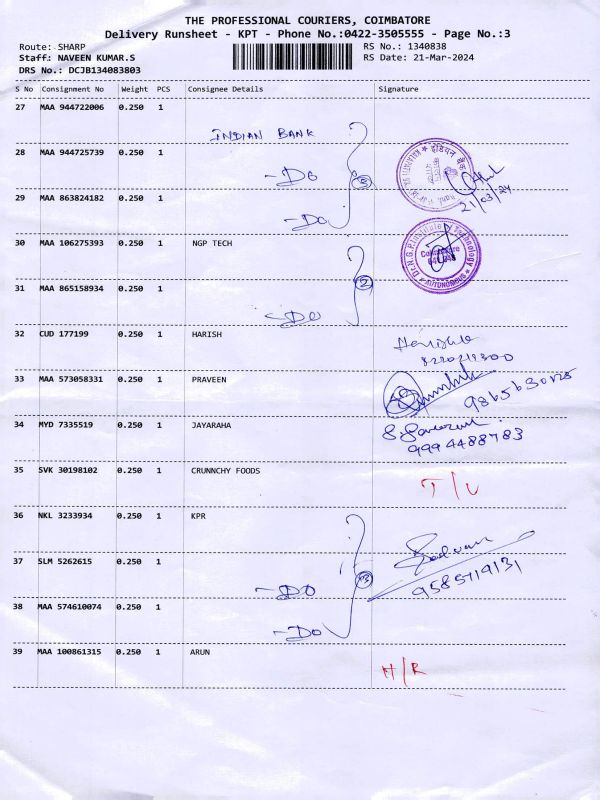 THE PROFESSIONAL COURIERS, COIMBATORE
Delivery Runsheet - KPT - Phone No.:0422-3505555 - Page No.:3
Route: SHARP
Staff: NAVEEN KUMAR.S
DRS No.: DCJB134083803
RS No.: 1340838
RS Date: 21-Mar-2024
S No Consignment No Weight PCS Consignee Details Signature
27 MAA 944722006 0.250 1
INDIAN BANK
28 MAA 944725739 0.250 1
-Do
3
21/03/24
29 MAA 863824182 0.250 1
-Do
30 MAA 106275393 0.250 1 NGP TECH
Dr.N.G.P.Institute of Technology
Coimbatore
* AUTONOMOUS *
31 MAA 865158934 0.250 1
2
-Do
32 CUD 177199 0.250 1 HARISH
33 MAA 573058331 0.250 1 PRAVEEN
34 MYD 7335519 0.250 1 JAYARAHA
9994488783
35 SVK 30198102 0.250 1 CRUNNCHY FOODS
T/U
36 NKL 3233934 0.250 1 KPR
37 SLM 5262615 0.250 1
-DO
3
9585719131
38 MAA 574610074 0.250 1
-Do
39 MAA 100861315 0.250 1 ARUN
H/R